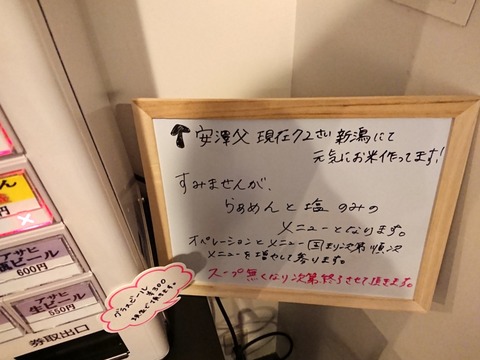 ↑安澤父 現在72さい 新潟にて
元気にお米作ってます!
すみませんが、
らぁめんと塩のみの
メニューとなります。
オペレーションとメニュー固まり次第順次
メニューを増やして参ります。
スープ無くなり次第終了させて頂きます。
ん
円
アサヒ
ビール
600円
アサヒ
生ビール
550円
券取出口
グラスビール
¥300